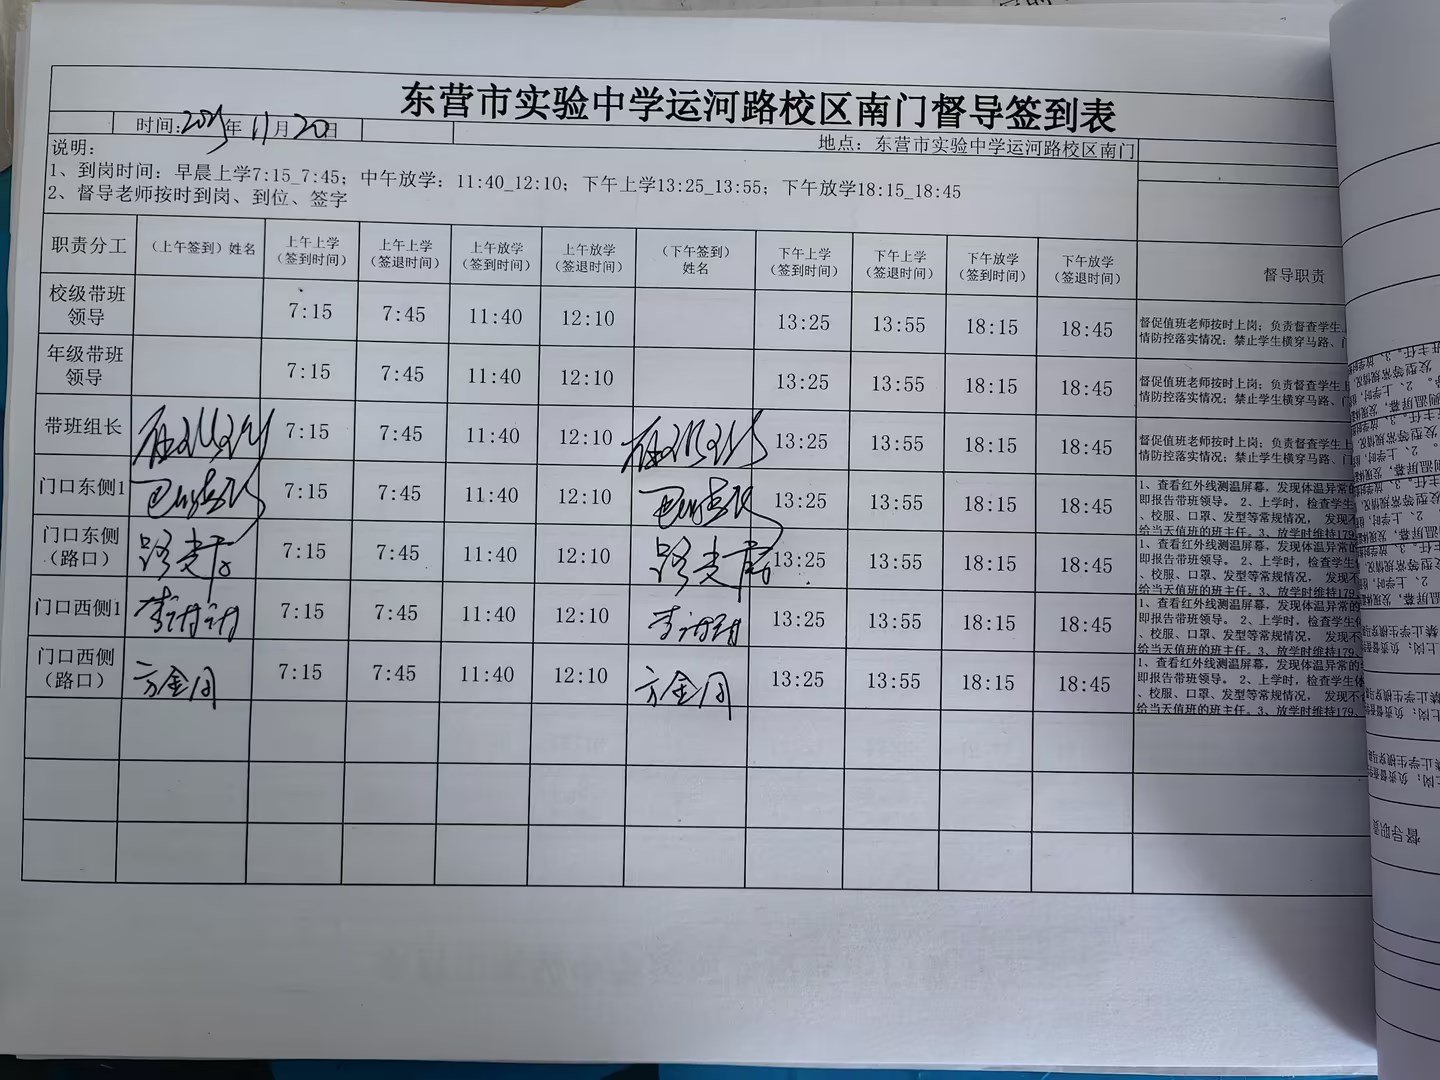 东营市实验中学运河路校区南门督导签到表
时间: 年11月20日
地点：东营市实验中学运河路校区南门
说明：
1、到岗时间：早晨上学7:15_7:45；中午放学：11:40_12:10；下午上学13:25_13:55；下午放学18:15_18:45
2、督导老师按时到岗、到位、签字
职责分工 （上午签到）姓名 上午上学（签到时间） 上午上学（签退时间） 上午放学（签到时间） 上午放学（签退时间） （下午签到）姓名 下午上学（签到时间） 下午上学（签退时间） 下午放学（签到时间） 下午放学（签退时间） 督导职责
校级带班领导 7:15 7:45 11:40 12:10 13:25 13:55 18:15 18:45
督促值班老师按时上岗；负责督查学生
情防控落实情况；禁止学生横穿马路、
年级带班领导 7:15 7:45 11:40 12:10 13:25 13:55 18:15 18:45
督促值班老师按时上岗；负责督查学生上
情防控落实情况；禁止学生横穿马路、
带班组长 7:15 7:45 11:40 12:10 13:25 13:55 18:15 18:45
督促值班老师按时上岗；负责督查学生上
情防控落实情况；禁止学生横穿马路、
门口东侧1 7:15 7:45 11:40 12:10 13:25 13:55 18:15 18:45
1、查看红外线测温屏幕，发现体温异常
即报告带班领导。 2、上学时，检查学生
、校服、口罩、发型等常规情况， 发现
给当天值班的班主任。3、放学时维持179
门口东侧（路口） 7:15 7:45 11:40 12:10 13:25 13:55 18:15 18:45
1、查看红外线测温屏幕，发现体温异常的
即报告带班领导。 2、上学时，检查学生
、校服、口罩、发型等常规情况， 发现不
给当天值班的班主任。3、放学时维持179
门口西侧1 李 7:15 7:45 11:40 12:10 李 13:25 13:55 18:15 18:45
1、查看红外线测温屏幕，发现体温异常的
即报告带班领导。 2、上学时，检查学生
、校服、口罩、发型等常规情况， 发现不
给当天值班的班主任。3、放学时维持179
门口西侧（路口） 方金 7:15 7:45 11:40 12:10 方金 13:25 13:55 18:15 18:45
1、查看红外线测温屏幕，发现体温异常的
即报告带班领导。 2、上学时，检查学生
、校服、口罩、发型等常规情况， 发现不
给当天值班的班主任。3、放学时维持179、
督导职责